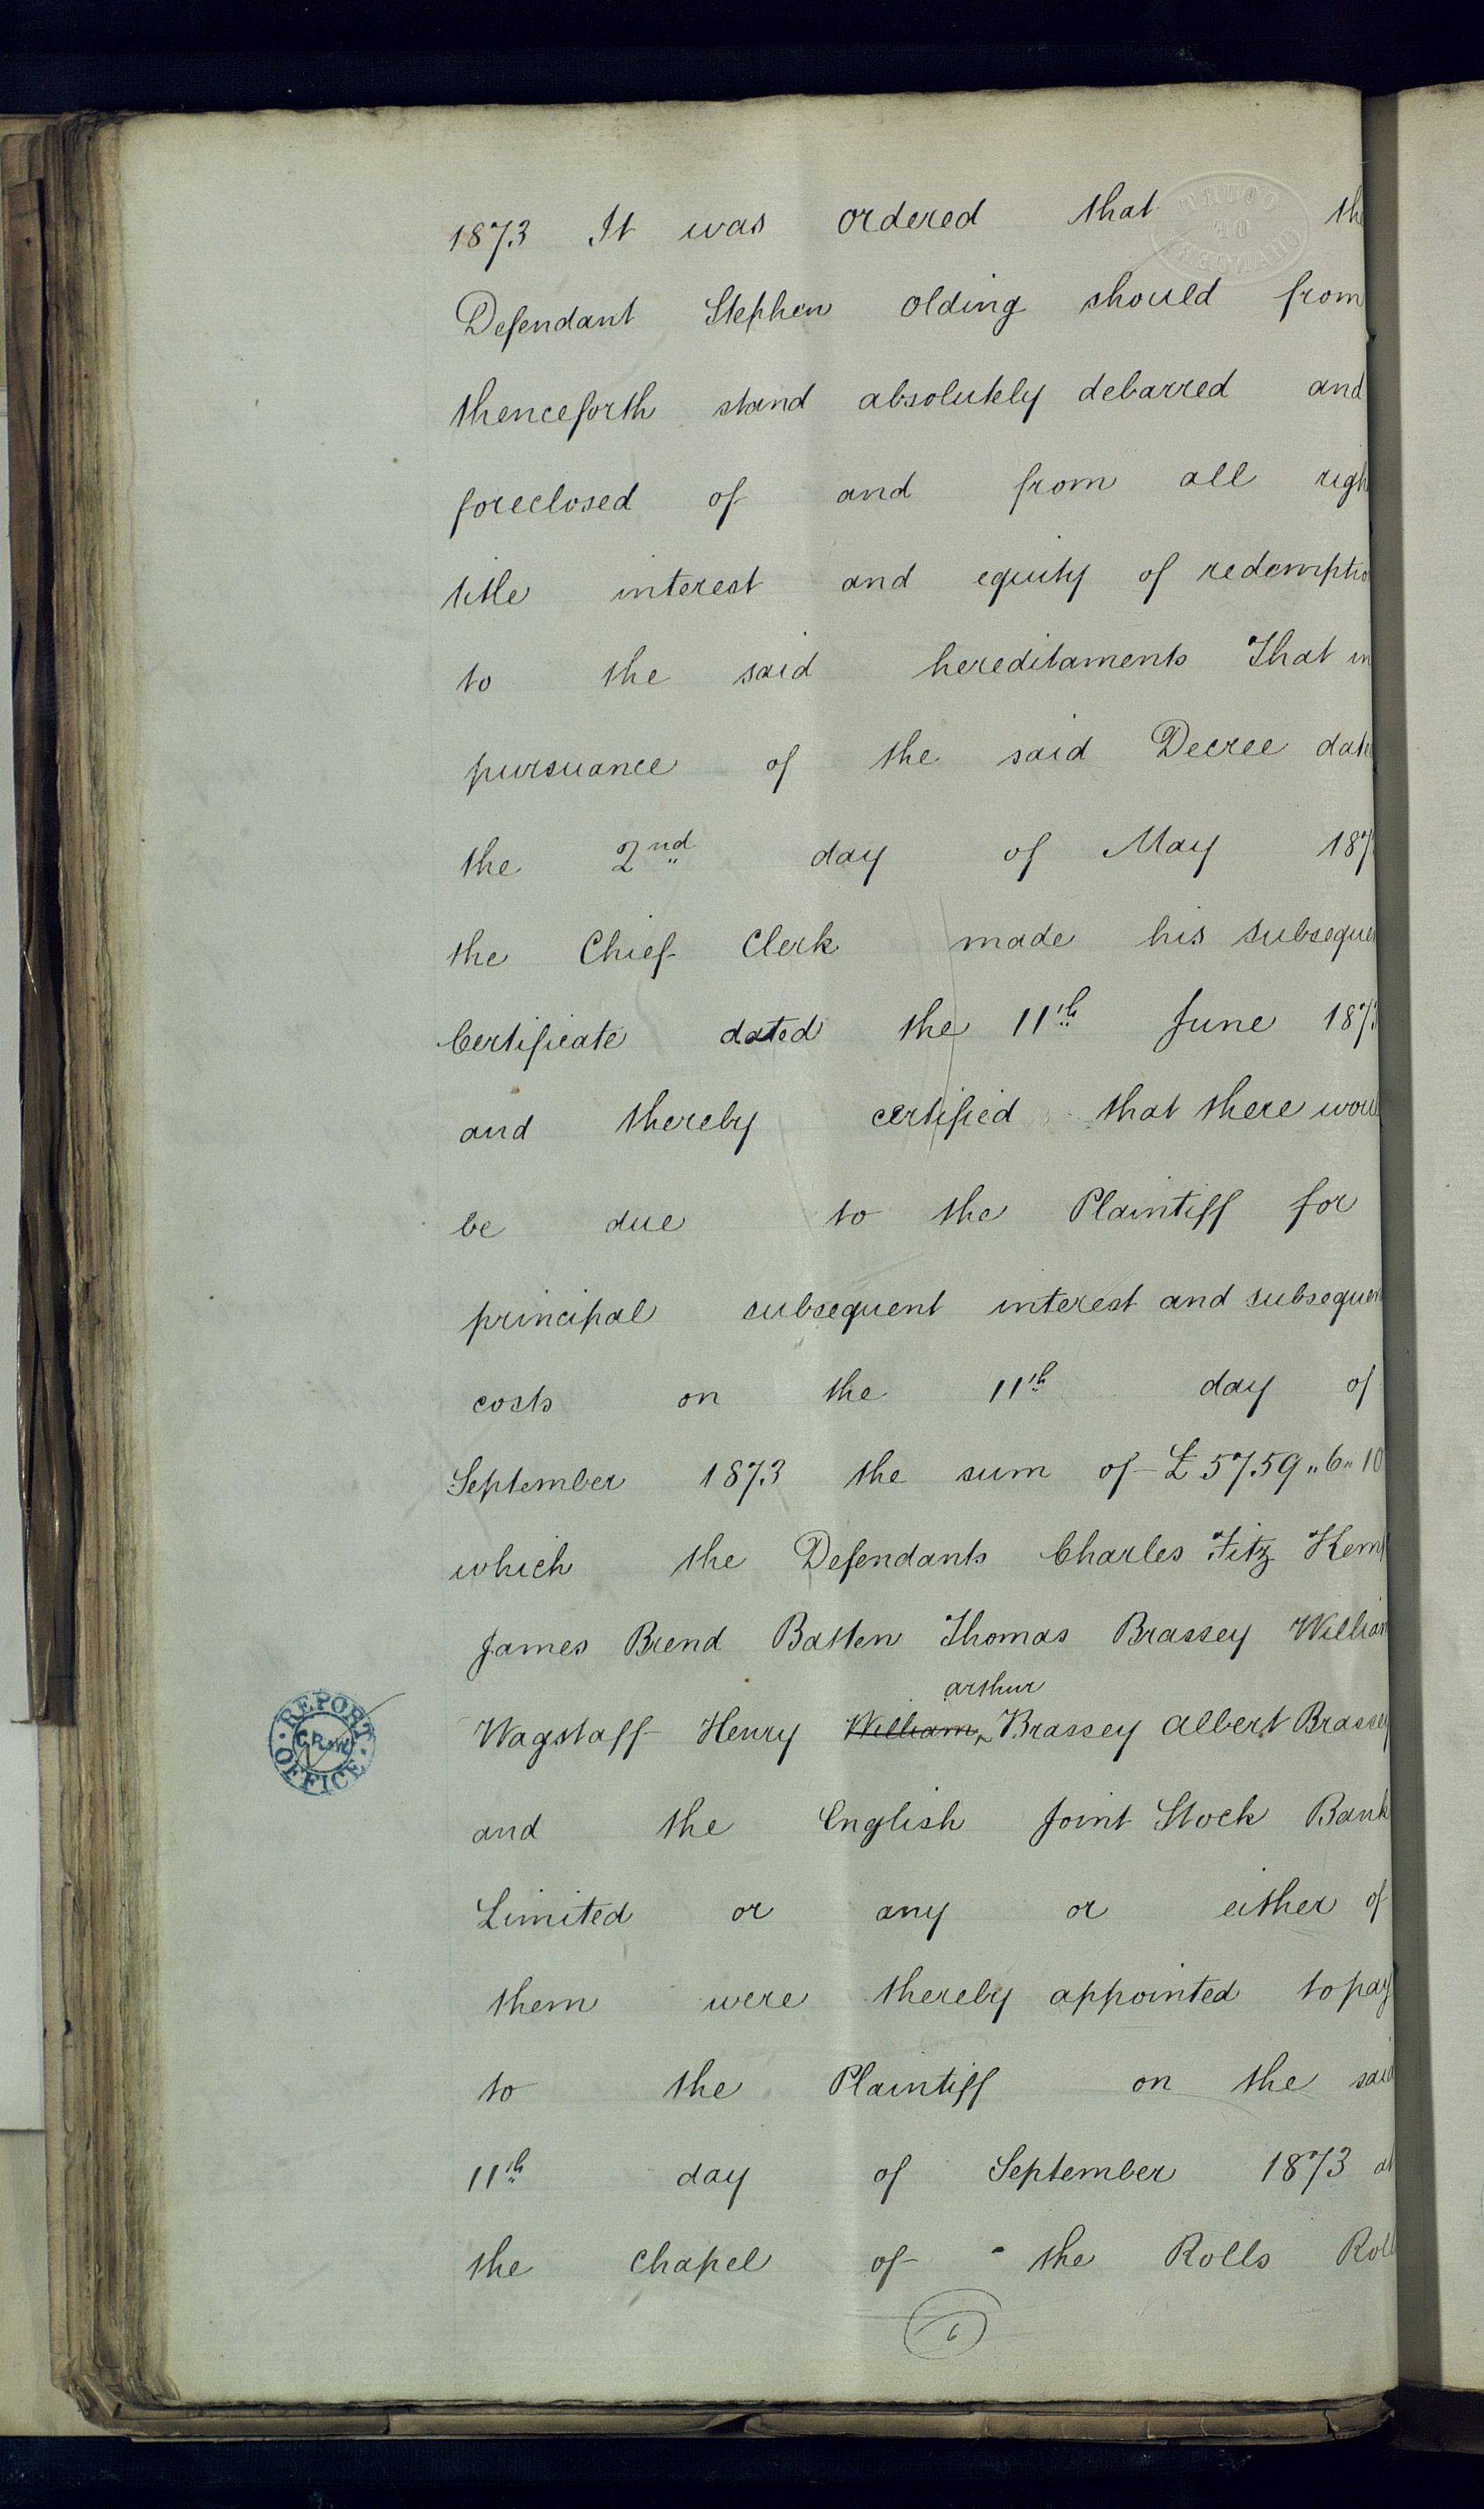 1873 It was ordered that th
Defendant Stephen Olding should from
thenceforth stand absolutely debarred and
foreclosed of and from all righ
title interest and equity of redemptio
to the said hereditaments That in
pursuance of the said Decree date
the 2nd day of May 187
the Chief Clerk made his subsequen
Certificate dated the 11th June 1873
and thereby certified that there woul
be due to the Plaintiff for
principal subsequent interest and subsequen
costs on the 11th day of
September 1873 the sum of £5759,,6,,10
which the Defendants Charles Fitz Kem
James Brend Batten Thomas Brassey William
arthur
Wagstaff Henry William Brassey Albert Brassey
and the English Joint Stock Bank
Limited or any or either of
them were thereby appointed to pay
to the Plaintiff on the said
11th day of September 1873 at
the Chapel of the Rolls Roll
6
REPORT OFFICE
COURT OF CHANCERY